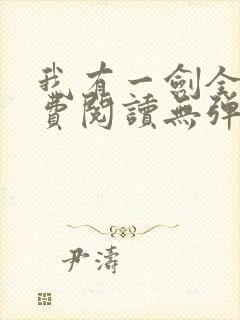 我有一劍全
費閱讀無彈
尹濤